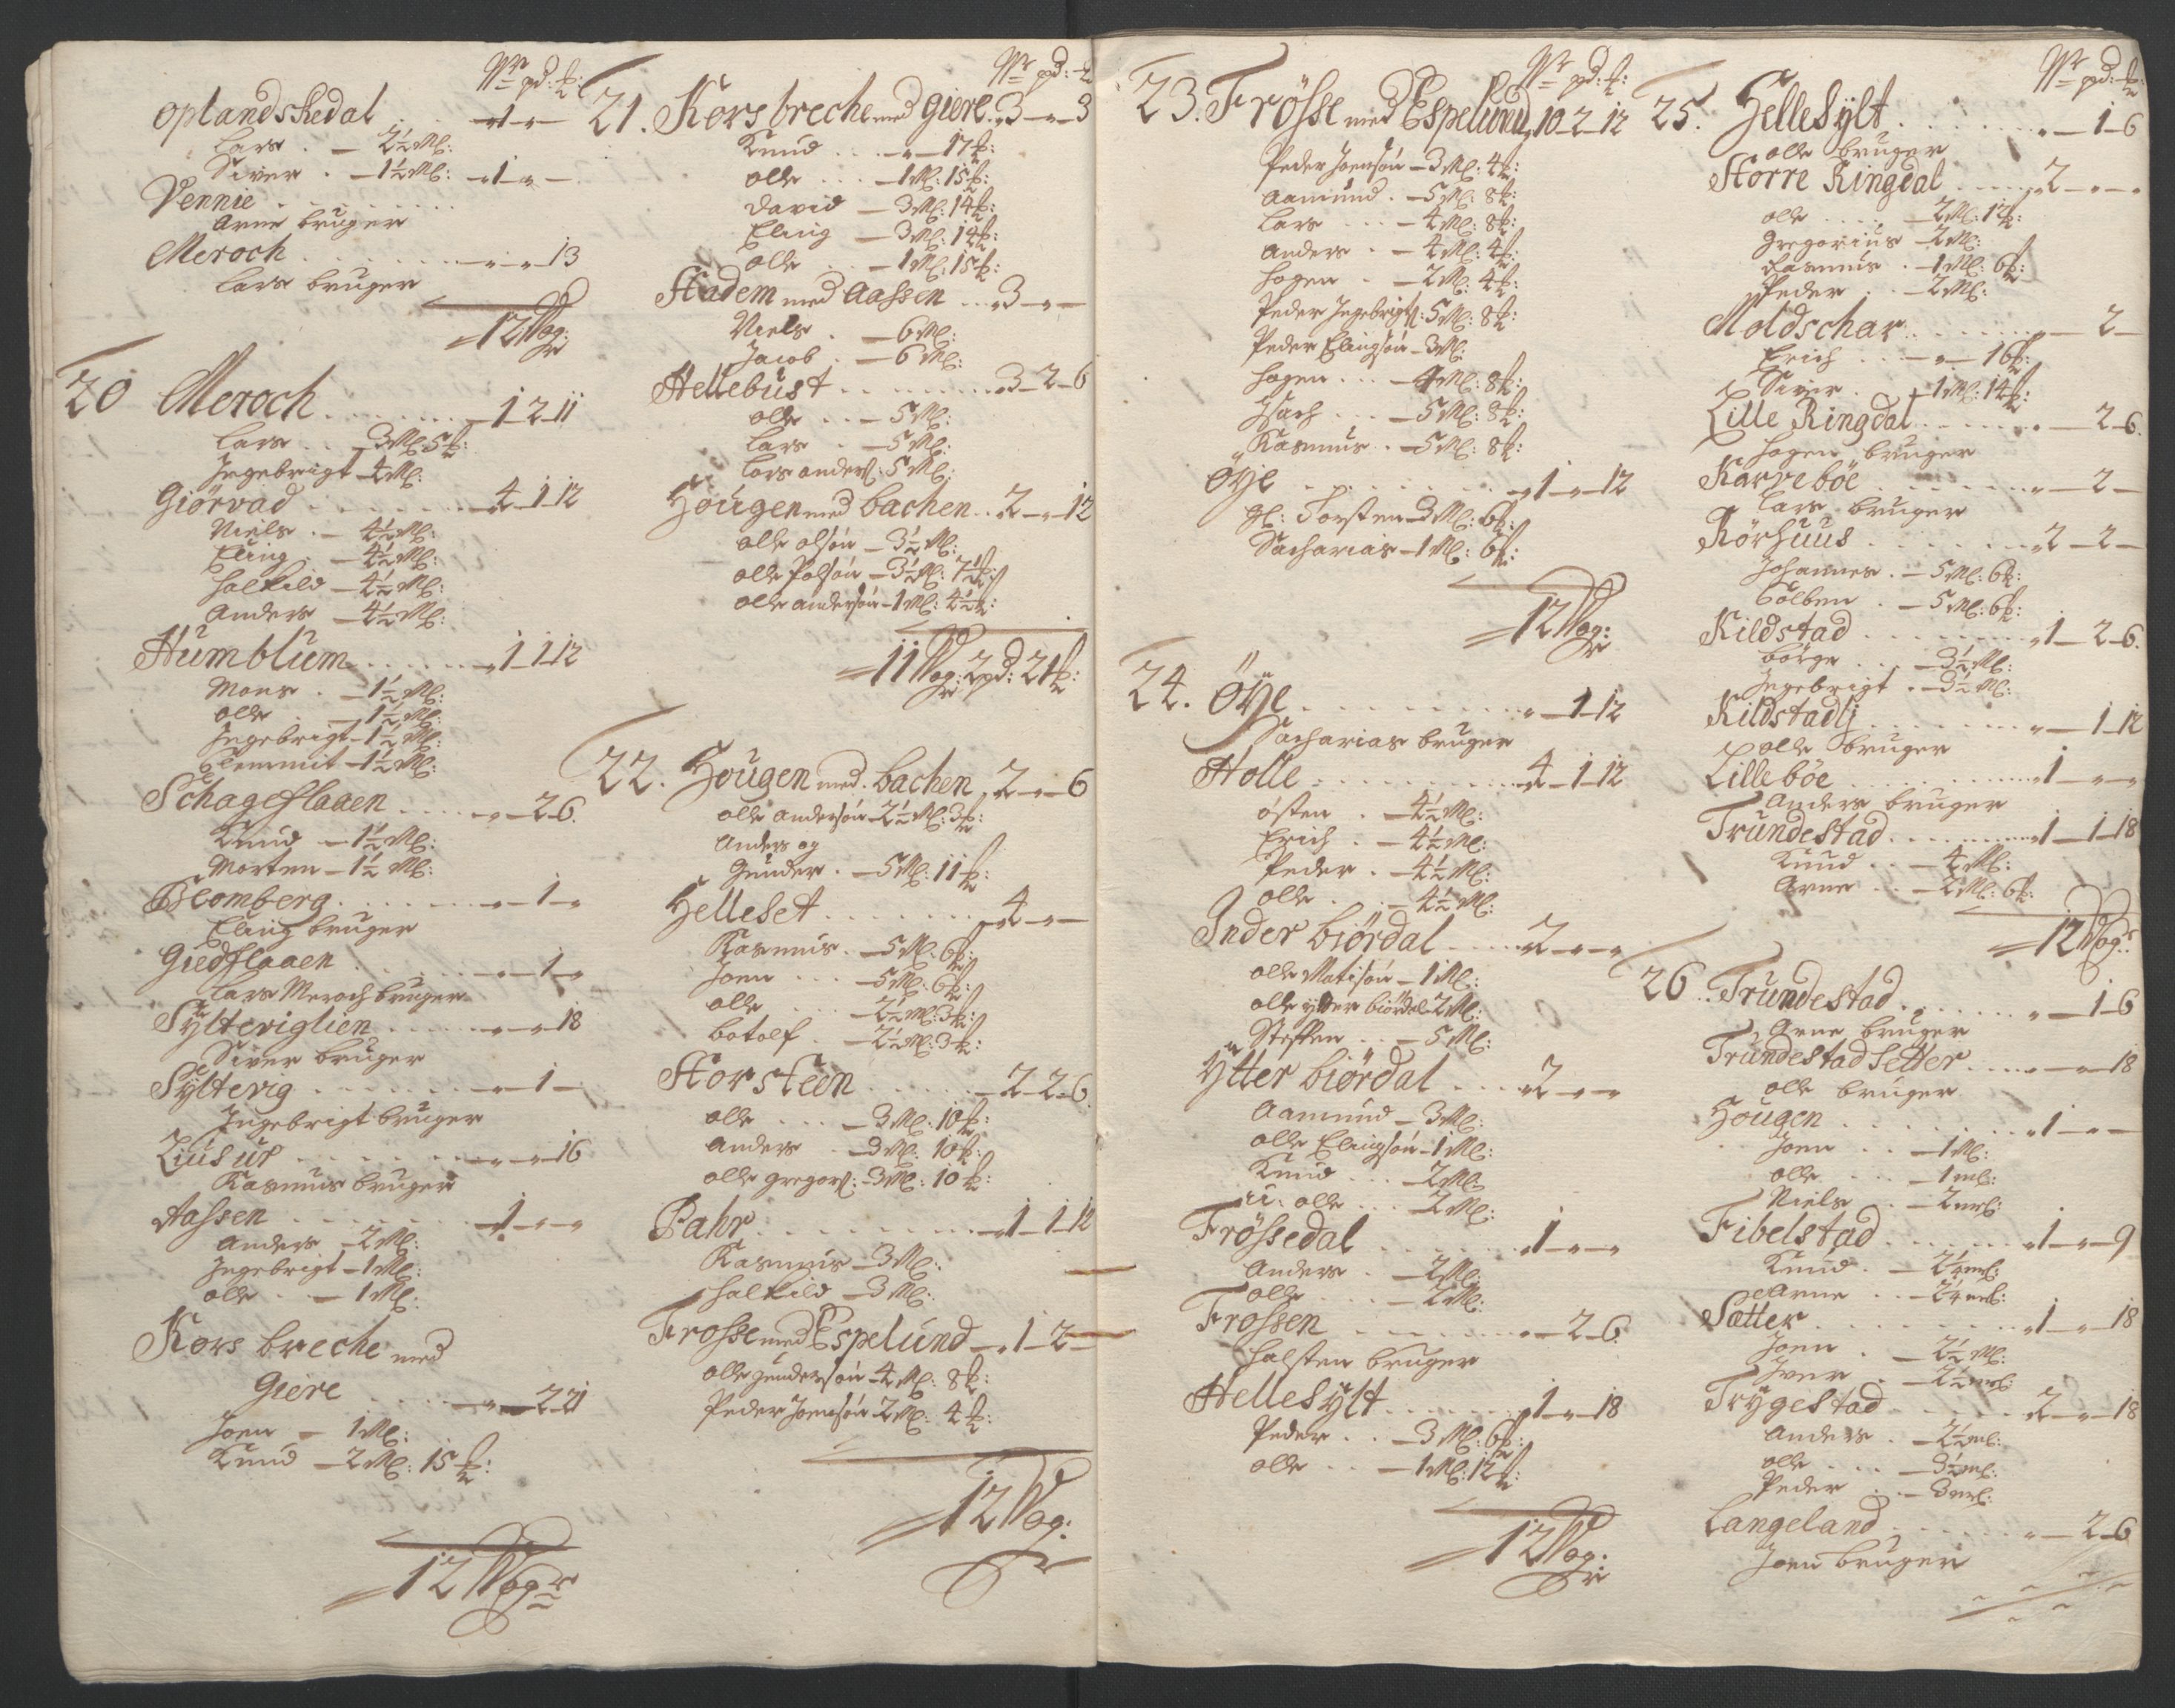 Wr pd: ℔:
Oplandskedal . . „1„—
Lars . — 2½ Ml:
Siver . — 1½ Ml: „1„—
Vennie . . . . . . .
Arne bruger
Meroch . . . . . . — „ — „ 13
Lars bruger
12 Wog:
20 Meroch . . . . . . 1-2-11
Lars . . 3 Ml 5 ℔:
Ingebrigt - 4 Ml:
Giörvad . . . . . . 4-1-12
Niels . — 4½ Ml:
Eling . — 4½ Ml:
Halkild — 4½ Ml:
Anders — 4½ Ml:
Humblum . . . . . . „1-1-12
Mons . — 1½ Ml:
Olle . — 1½ Ml:
Ingebrigt - 1½ Ml:
Clemmit - 1½ Ml:
Schageflaaen . . . . „ — 2-6.
Knud — 1½ Ml:
Morten — 1½ Ml:
Blomberg . . . . . . „ — 1 — „
Eling bruger
Giedflaaen . . . . . „ — 1 — „
Lars Meroch bruger
Sÿlteviglien . . . . — „ — „ 18
Siver bruger
Sÿltevig . . . . . . „ — 1 —
Ingebrigt bruger
Liusur . . . . . . „ — „ — 16
Rasmus bruger
Aassen . . . . . . 1 — „ — „
Anders — 2 Ml:
Ingebrigt — 1 Ml:
Olle . . — 1 Ml:
Kors breche med
Giere . . . — „ — 2-21
Joen — 1 Ml:
Knud — 2 Ml: 15 ℔:
12 Wogr
Wr pd: ℔
21. Kors breche med Giere . 3 — „ — 3
Knud . . . — „ — 17 ℔:
Olle . . . — 1 Ml: 15 ℔:
David — 3 Ml: 14 ℔:
Eling — 3 Ml: 14 ℔:
Olle . . — 1 Ml: 15 ℔:
Stadem med Aassen . . . 3 — „ —
Niels . — 6 Ml:
Jacob . — 6 Ml:
Hellebust . . . . . . . 3-2-6
Olle . . — 5 Ml:
Lars . — 5 Ml:
Lars anders: 5 Ml:
Hougen med bachen . . 2 — „ 12
Olle olsön — 3½ Ml:
Olle Polsön — 3½ Ml: 7½ ℔:
Olle andersön - 1 Ml: 4½ ℔:
11 Wog: 2 pd: 21 ℔:
22. Hougen med bachen . 2 — „ — 6
Olle andersön - 2½ Ml: 3 ℔:
Anders og
Gunder . — 5 Ml: 11 ℔:
Helleset . . . . . . . 4 — „ —
Rasmus . — 5 Ml: 6 ℔:
Joen . . . — 5 Ml: 6 ℔:
Olle . . . — 2½ Ml: 3 ℔:
botolf . — 2½ Ml: 3 ℔:
Storsteen . . . . . — 2-2-6
Olle . . . — 3 Ml: 10 ℔:
Anders . — 3 Ml: 10 ℔:
Olle gregors: - 3 Ml: 10 ℔:
Bahr . . . . . . . . 1-1-12
Rasmus — 3 Ml:
Halkild — 3 Ml:
Frosse med Espelund — „ 1-2-
Olle gundersön - 4 Ml: 8 ℔:
Peder Joensön - 2 Ml: 4 ℔:
12 Wog:
Wr pd: ℔:
23. Frösse med Espelund, 10-2-12
Peder Joensön - 3 Ml: 4 ℔:
Aamund . — 5 Ml: 8 ℔:
Lars . . . — 4 Ml: 8 ℔:
Anders . — 4 Ml: 4 ℔:
Hogen . — 2 Ml: 4 ℔:
Peder Ingebrigts: 5 Ml: 8 ℔:
Peder Elingsön - 3 Ml:
Hogen . . . — 4 Ml: 8 ℔:
Isach . . . — 5 Ml: 8 ℔:
Rasmus . — 5 Ml: 8 ℔:
Öÿe . . . . . . . „ 1 — „ — 12
gl: Torsten - 3 Ml: 6 ℔:
Sacharias - 1 Ml: 6 ℔:
12 Wog:
24. Öÿe . . . . . . . . „ — 1-12
Sacharias bruger
Holle . . . . . . . . 4-1-12
Östen . — 4½ Ml:
Erich . — 4½ Ml:
Peder . — 4½ Ml:
Olle . — 4½ Ml:
Inder biördal . . . . 2 — „ — „
Olle Matisön — 1 Ml:
Olle ytter biördal - 2 Ml:
Steffen . . — 5 Ml:
Ytter biördal . . . . 2 — „ — „
Aamund — 3 Ml:
Olle Elingsön - 1 Ml:
Knud . . . — 2 Ml:
Olle . . . — 2 Ml:
Frössedal . . . . . . „ 1 — „ — „
Anders . — 2 Ml:
Olle . . . — 2 Ml:
Frossen . . . . . . . „ — 2-6.
Halsten bruger
Hellesÿlt . . . . . . „ 1 — „ — 18
Peder . . — 3 Ml: 6 ℔:
Olle . . . — 1 Ml: 12 ℔:
12 Wog:
Wr pd: ℔:
25. Hellesÿlt . . . . . . „ — 1-6
Olle bruger
Storre Ringdal . . . . „ 2 — „ — „
Olle . . . . — 2 Ml: 12 ℔:
Gregorius — 2 Ml:
Rasmus . — 1 Ml: 6 ℔:
Peder . . — 2 Ml:
Moldschar . . . . . . . „ — 2 —
Erich . . . — „ — 16 ℔:
Siver . . — 1 Ml: 14 ℔:
Lille Ringdal . . . . . . „ — 2-6.
Hogen bruger
Karreböe . . . . . . . „ — 2 —
Lars bruger
Rörhuus . . . . . . . „ 2-2-
Johannes . — 5 Ml: 6 ℔:
Colben . — 5 Ml: 6 ℔:
Kildstad . . . . . . . „ 1-2-6.
börge . . . — 3½ Ml:
Ingebrigt . — 3½ Ml:
Kildstadlj . . . . . . „ — 1-12
Olle bruger
Lilleböe . . . . . . . „ 1 — „ — „
Anders bruger
Trundestad . . . . . . . 1-1-18
Knud . . — 4 Ml:
Arne . . — 2 Ml: 6 ℔:
12 Wog:
26 . Trundestad . . . . . . „ — 1-6
Arne bruger
Trundestad setter . . . . — „ — „ 18
Olle bruger
Hougen . . . . . . . . „ 1 — „ —
Joen . . — 1 Ml:
Olle . . . — 1 ml:
Niels . . — 2 ml:
Fibelstad . . . . . . . „ 1 — „ — 9
Knud . — 2¼ ml:
Arne . . — 2¼ ml:
Sætter . . . . . . . . „ 1 — „ — 18
Joen . — 2½ Ml:
Iver . — 2½ ml:
Trÿgestad . . . . . . 2 — „ — 18
Anders . — 2½ ml:
Olle . . . — 3½ ml:
Peder . . — 3 ml:
Langeland . . . . . . „ — 2-6
Joen bruger